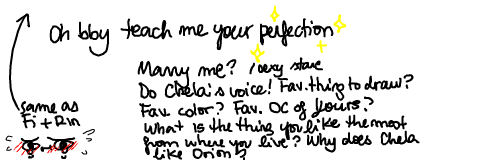 Oh bby teach me your perfection
Marry me? /very stare
Do Chela's voice! Fav. thing to draw?
Fav. color? Fav. OC of yours?
What is the thing you like the most
from where you live? Why does Chela
like Orion?
same as
Fi + Rin